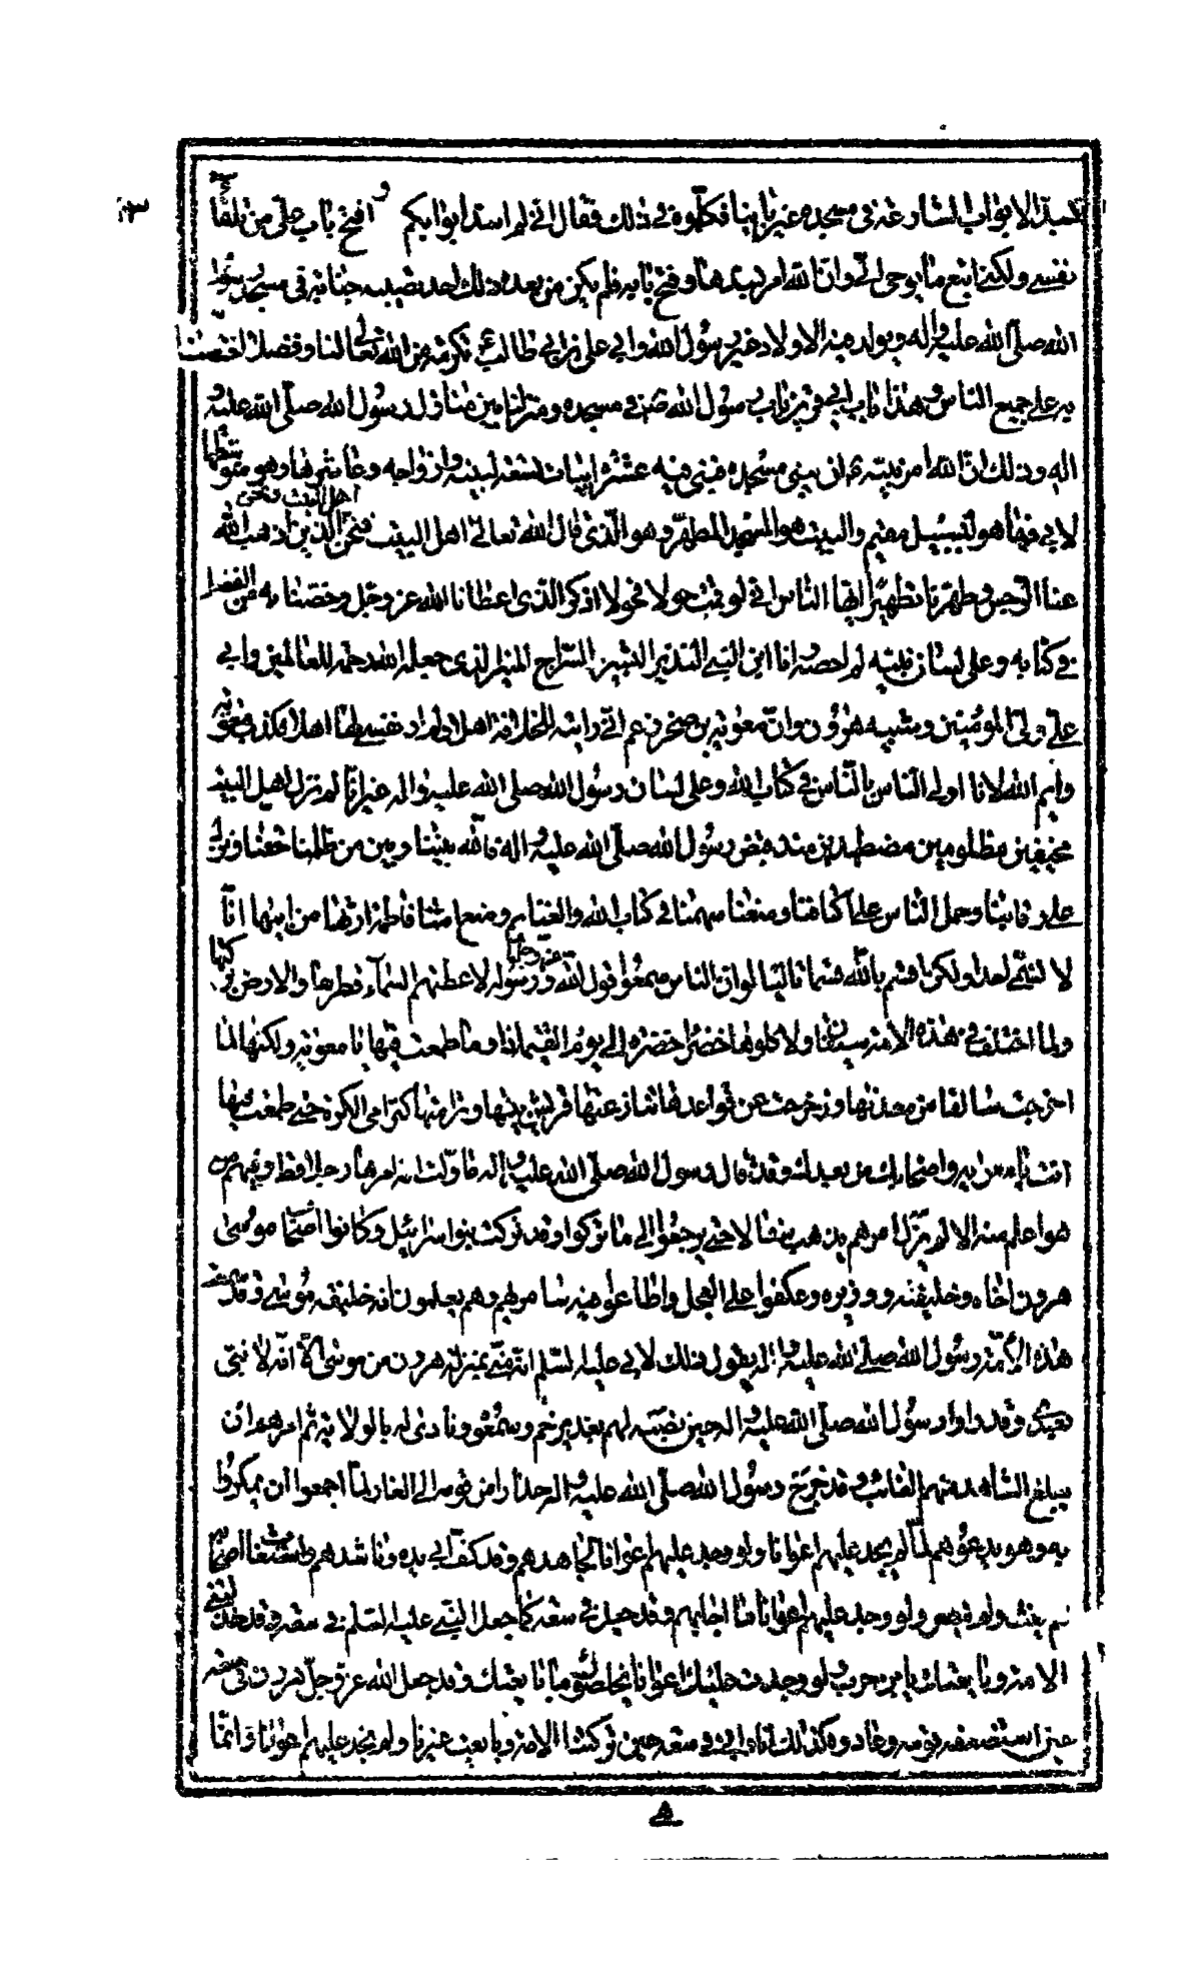 ١٣
بسد الابواب الشارعة فى مسجده غير بابنا فكلموه فى ذلك فقال انى لم اسد ابوابكم و افتح باب على من تلقاء
نفسى ولكنى اتبع ما يوحى الى وان الله امر بسدها وفتح بابه فلم يكن من بعده ذلك احد تصيبه جنابة فى مسجد رسول
الله صلى الله عليه واله ويولد فيه الاولاد غير رسول الله وابى على بن ابى طالب تكرمة من الله تعالى لنا وفضلا اختصنا
به على جميع الناس وهذا باب ابى قرين باب رسول الله ص فى مسجده ومنزلنا بين منازل رسول الله صلى الله عليه و
اله وذلك ان الله امر نبيه ان يبنى مسجده فبنى فيه عشرة ابيات تسعة لبنيه وازواجه وعاشرها وهو متوسطها
لابى فها هو لبسبيل مقيم والبيت هو المسجد المطهر وهو الذى قال الله تعالى اهل البيت فنحن اهل البيت ونحن الذين اذهب الله
عنا الرجس وطهرنا تطهيرا ايها الناس انى لو قمت حولا فحولا اذكر الذى اعطانا الله عز وجل وخصنا به من الفضل
فى كتابه وعلى لسان نبيه لم احصه وانا ابن النبى النذير البشير السراج المنير الذى جعله الله رحمة للعالمين وابى
على ولى المؤمنين وشبيه هرون وان معوية بن صخر زعم انى رايته للخلافة اهلا ولم ار نفسى لها اهلا فكذب معوية
وايم الله لانا اولى الناس بالناس فى كتاب الله وعلى لسان رسول الله صلى الله عليه واله غير انا لم نزل اهل البيت
مخيفين مظلومين مضطهدين منذ قبض رسول الله صلى الله عليه و اله فالله بيننا وبين من ظلمنا حقنا ونزل
على رقابنا وحمل الناس على اكتافنا ومنعنا سهمنا فى كتاب الله والغنايم ومنع امنا فاطمة ارثها من ابيها انا
لا نسمى احدا ولكن اقسم بالله قسما تاليا لو ان الناس سمعوا قول الله عز وجل ورسوله لاعطتهم السماء قطرها والارض بركتها
ولما اختلف فى هذه الامة سيفان ولاكلوها خضراء خضرة الى يوم القيمة اذا وما طمعت فيها يا معوية ولكنها لما
اخرجت سالفا من معدنها وزخرجت عن قواعدها تنازعتها قريش بينها وترامتها كترامى الكرة حتى طمعت فيها
انت يا معوية واصحابك من بعدك وقد قال رسول الله صلى الله عليه واله ما ولت امة امرها رجلا قط وفيهم من
هو اعلم منه الا لم يزل امرهم يذهب سفالا حتى يرجعوا الى ما تركوا وقد تركت بنوا اسرائيل وكانوا اصحاب موسى
هرون اخاه وخليفته ووزيره وعكفوا على العجل واطاعوا فيه سامريهم وهم يعلمون انه خليفة موسى وقد سمعت
هذه الامة رسول الله صلى الله عليه واله يقول ذلك لابى عليه السلم انه منى بمنزلة هرون من موسى الا انه لا نبى
بعدى وقد راوا رسول الله صلى الله عليه و اله حين نصبه لهم بغدير خم وسمعوه ونادى له بالولاية ثم امرهم ان
يبلغ الشاهد منهم الغائب وقد خرج رسول الله صلى الله عليه واله حذارا من قومه الى الغار لما اجمعوا ان يمكروا
به وهو يدعوهم لما لم يجد عليهم اعوانا ولو وجد عليهم اعوانا لجاهدهم وقد كف ابى يده وناشدهم واستغاث اصحابه
فلم يغث ولم ينصر ولو وجد عليهم اعوانا ما اجابهم وقد جعل فى سعة كما جعل النبى عليه السلم فى سعة وقد خذلتنى
الامة وبايعتك يابن حرب ولو وجدت عليك اعوانا يخلصون ما بايعتك وقد جعل الله عز وجل هرون فى سعة
حين استضعفه قومه وعادوه كذلك انا وابى فى سعة حين تركتنا الامة وبايعت غيرنا ولم نجد عليهم اعوانا وانما